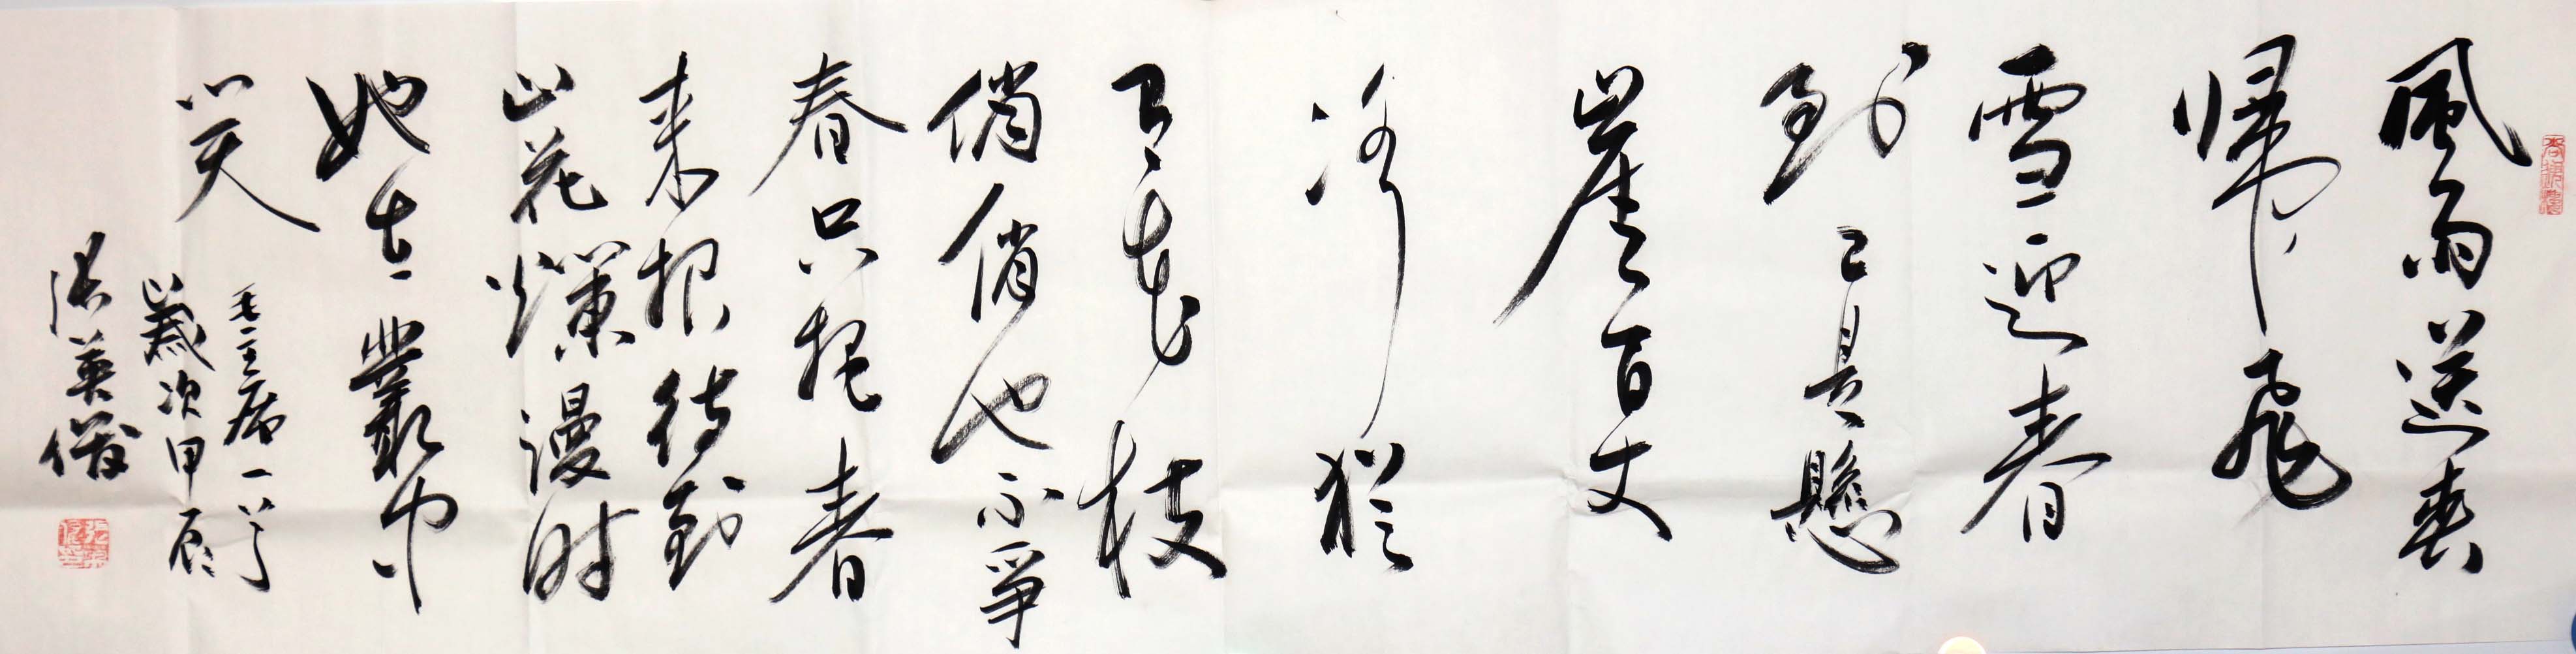 風雨送春
帰飛
雪迎春
到已是懸
崖百丈
冰猶
有花枝
俏俏也不爭
春只把春
来报待到
山花爛漫时
她在叢中
笑
毛主席
歲次甲辰
張英